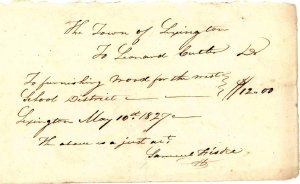 The Town of Lexington
To Leonard Cutler Dr
To furnishing wood for the west
School District $12.00
Lexington May 10th 1827
The above is a just act
Samuel Fiske